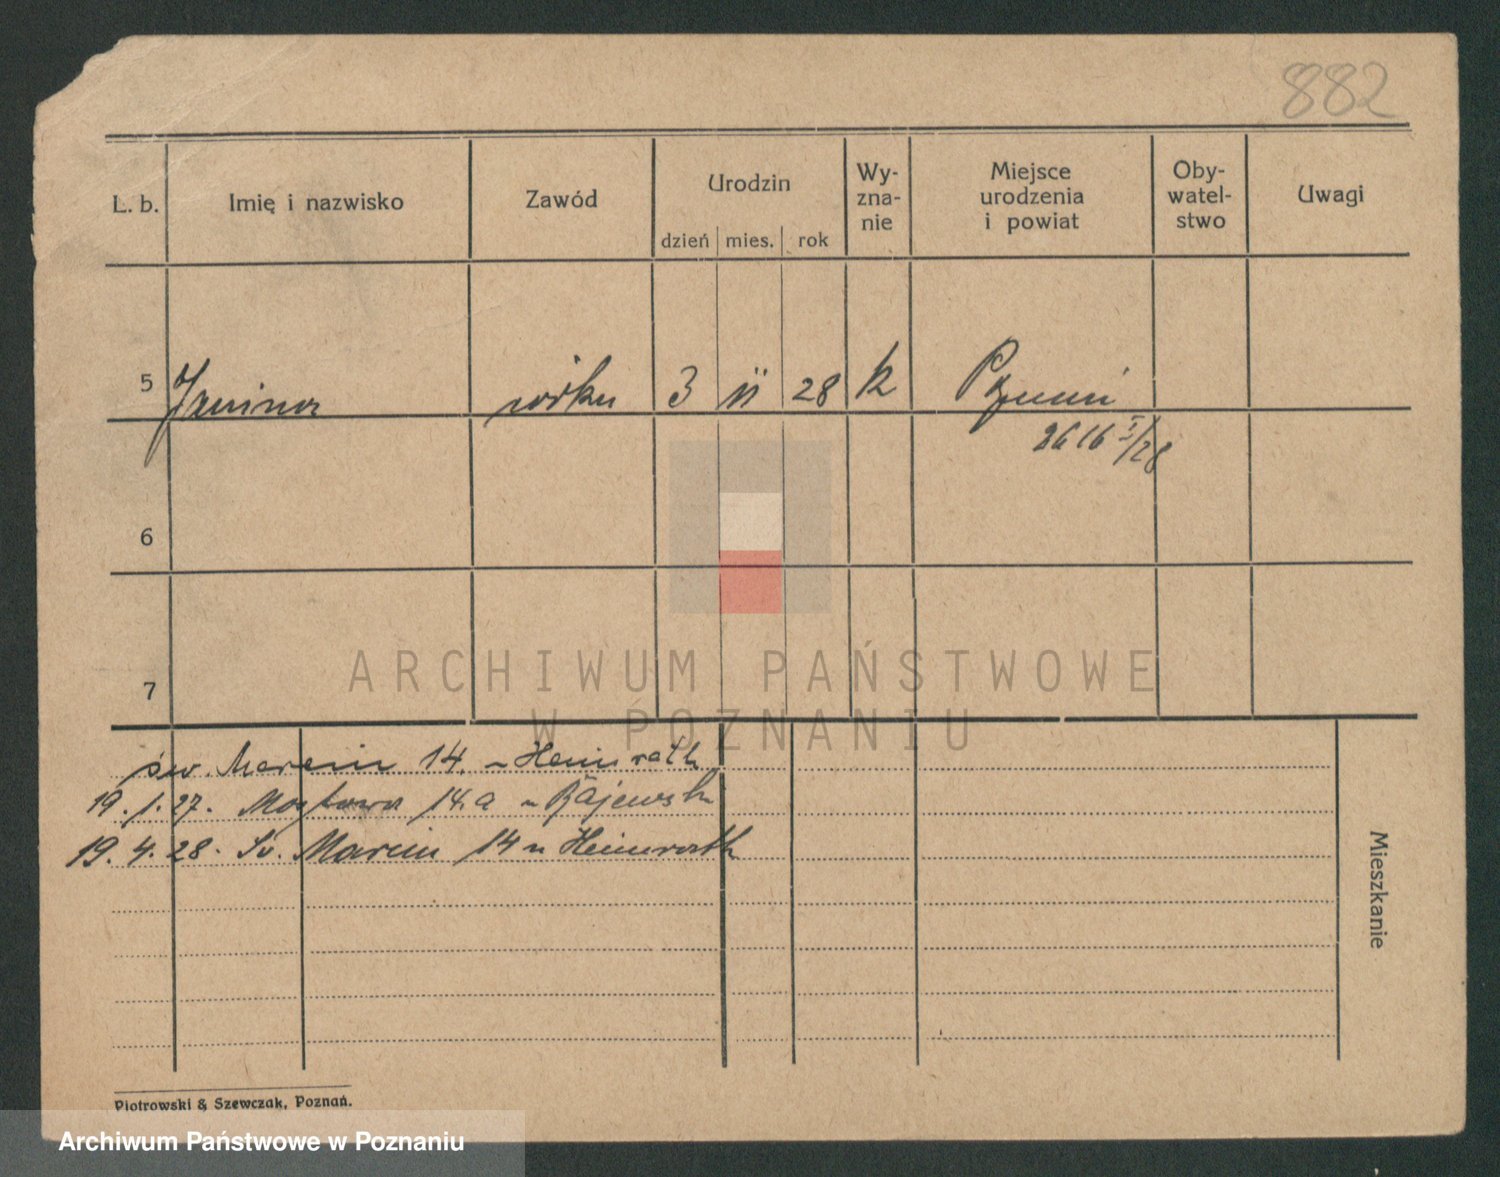 882
L. b. Imię i nazwisko Zawód Urodzin Wy-zna-nie Miejsce urodzenia i powiat Oby-watel-stwo Uwagi
dzień mies. rok
5 Janina 3 II 28 k Poznań
2616 I/28
6
7
ARCHIWUM PAŃSTWOWE
W POZNANIU
św. Marcin 14. u Heinrath
19. 1. 27. Mostowa 14.a u Rajewski
19. 4. 28. Św. Marcin 14 u Heinrath
Mieszkanie
Piotrowski & Szewczak, Poznań.
Archiwum Państwowe w Poznaniu